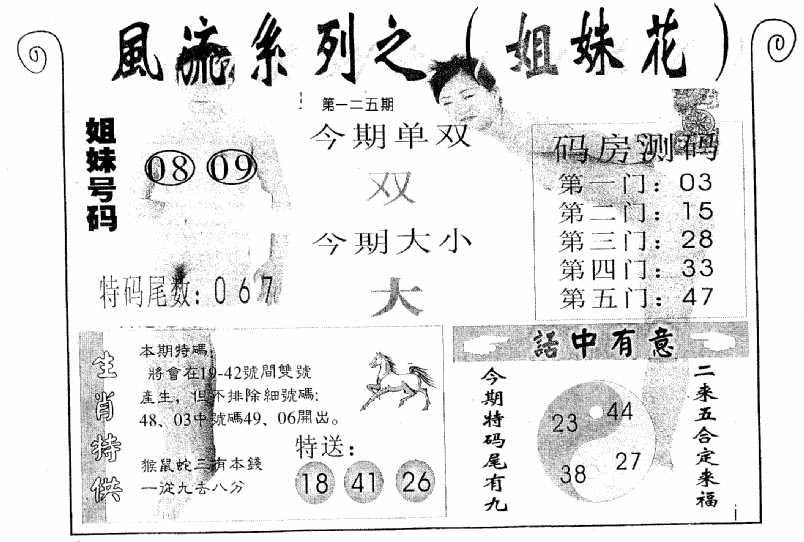 風流系列之（姐妹花）
第一二五期
姐妹号码
08 09
今期单双
双
今期大小
大
特码尾数：067
码房测码
第一门：03
第二门：15
第三门：28
第四门：33
第五门：47
生肖特供
本期特碼：
將會在19-42號間雙號
產生，但不排除細號碼：
48、03中號碼49、06開出。
猴鼠蛇三有本錢
一從九去八分
特送：
18 41 26
話中有意
今期特码尾有九
23 44
38 27
二来五合定来福